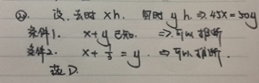 ㉒ 设,去时 x h. 回时 y h ⇒ 45x = 30y
条件1. x+y 已知. ⇒ 可以推断
条件2. x + 1/3 = y. ⇒ 可以推断
选 D.